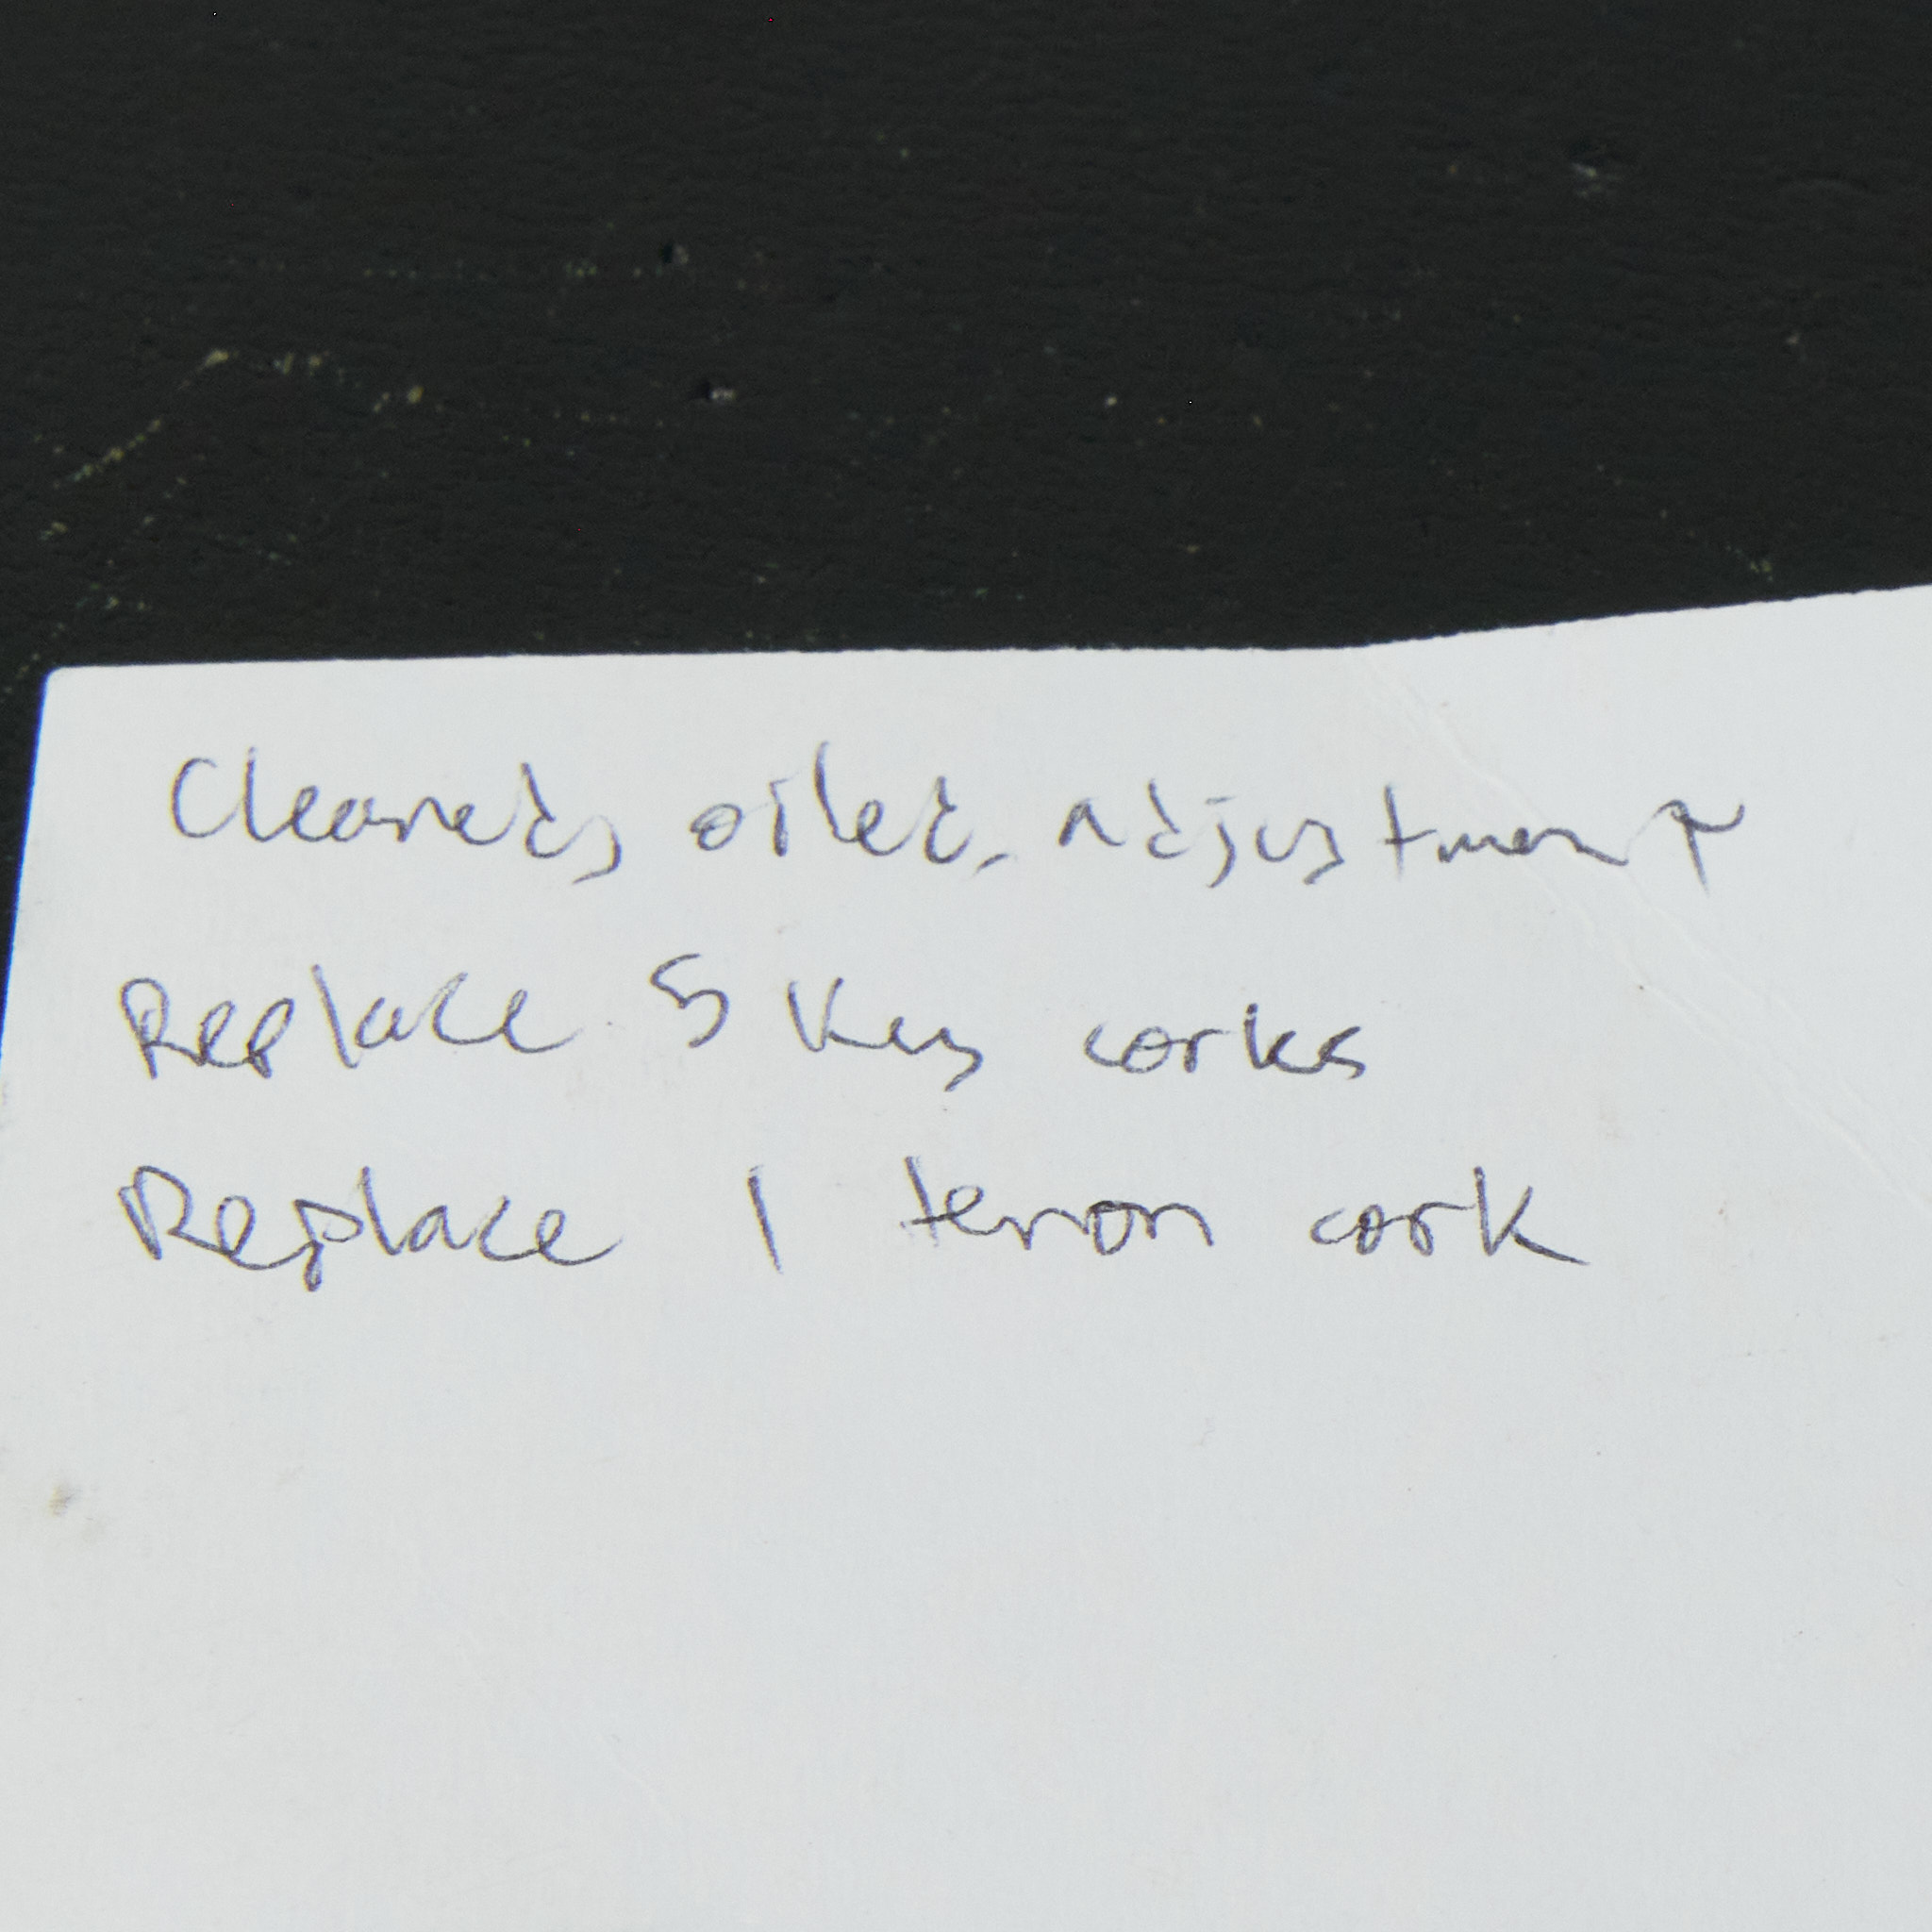 Cleaned, oiled, adjustment
Replace 5 Key corks
Replace 1 tenon cork